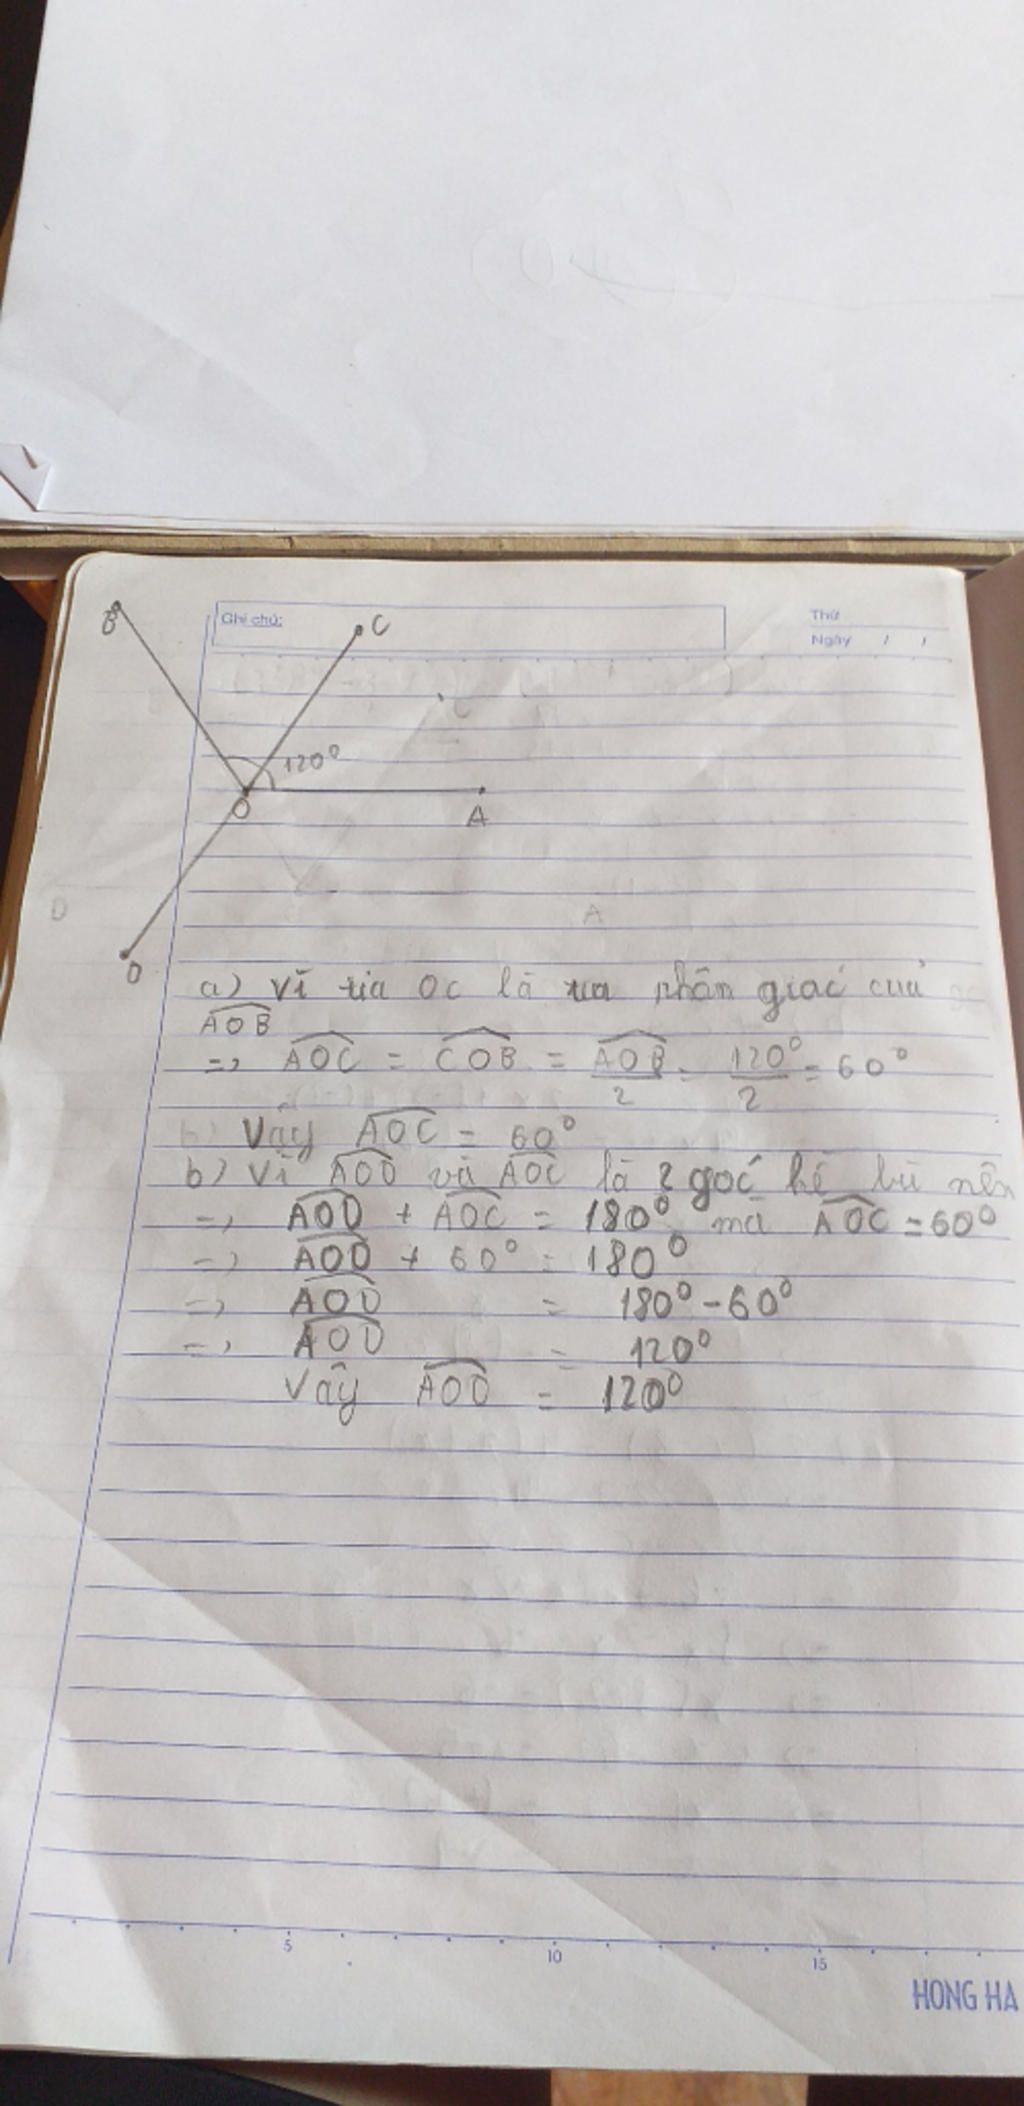 B
C
Ghi chú:
Thứ
Ngày / /
120⁰
O
A
D
a) Vì tia OC là tia phân giác của
AOB
=> AOC = COB = AOB/2 = 120⁰/2 = 60⁰
Vậy AOC = 60⁰
b) Vì AOD và AOC là 2 góc kề bù nên
=> AOD + AOC = 180⁰ mà AOC = 60⁰
=> AOD + 60⁰ = 180⁰
=> AOD = 180⁰ - 60⁰
=> AOD = 120⁰
Vậy AOD = 120⁰
5 10 15
HONG HA